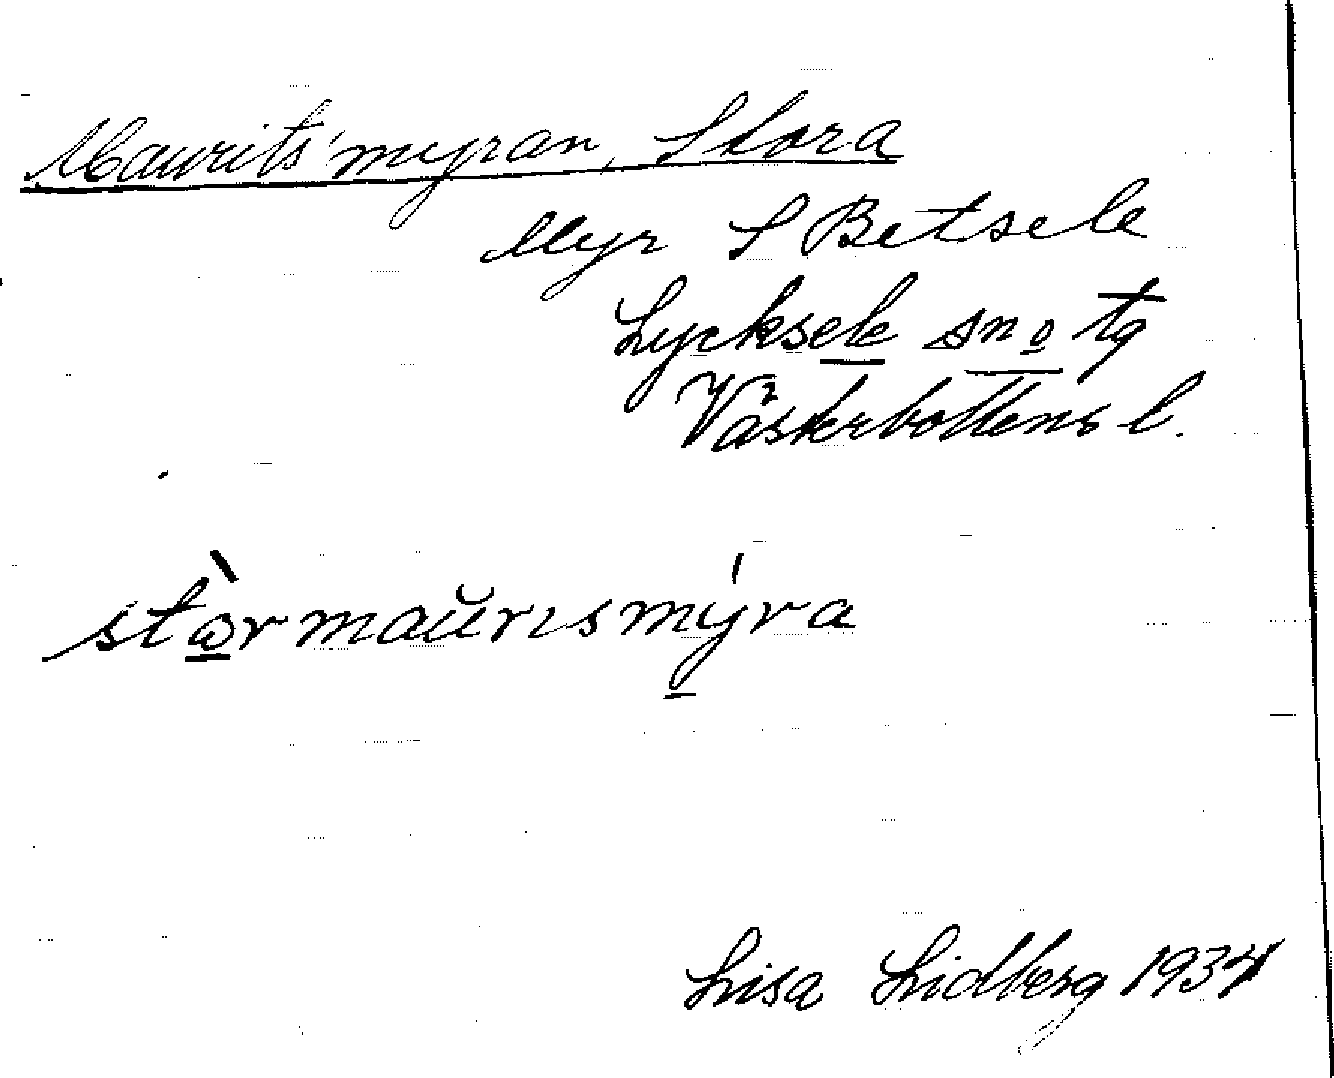 Maurits'myran, Stora
Myr S Betsele
Lycksele sno tg
Västerbottens l.
stòrmaŭrısmýra
Lisa Lidberg 1934